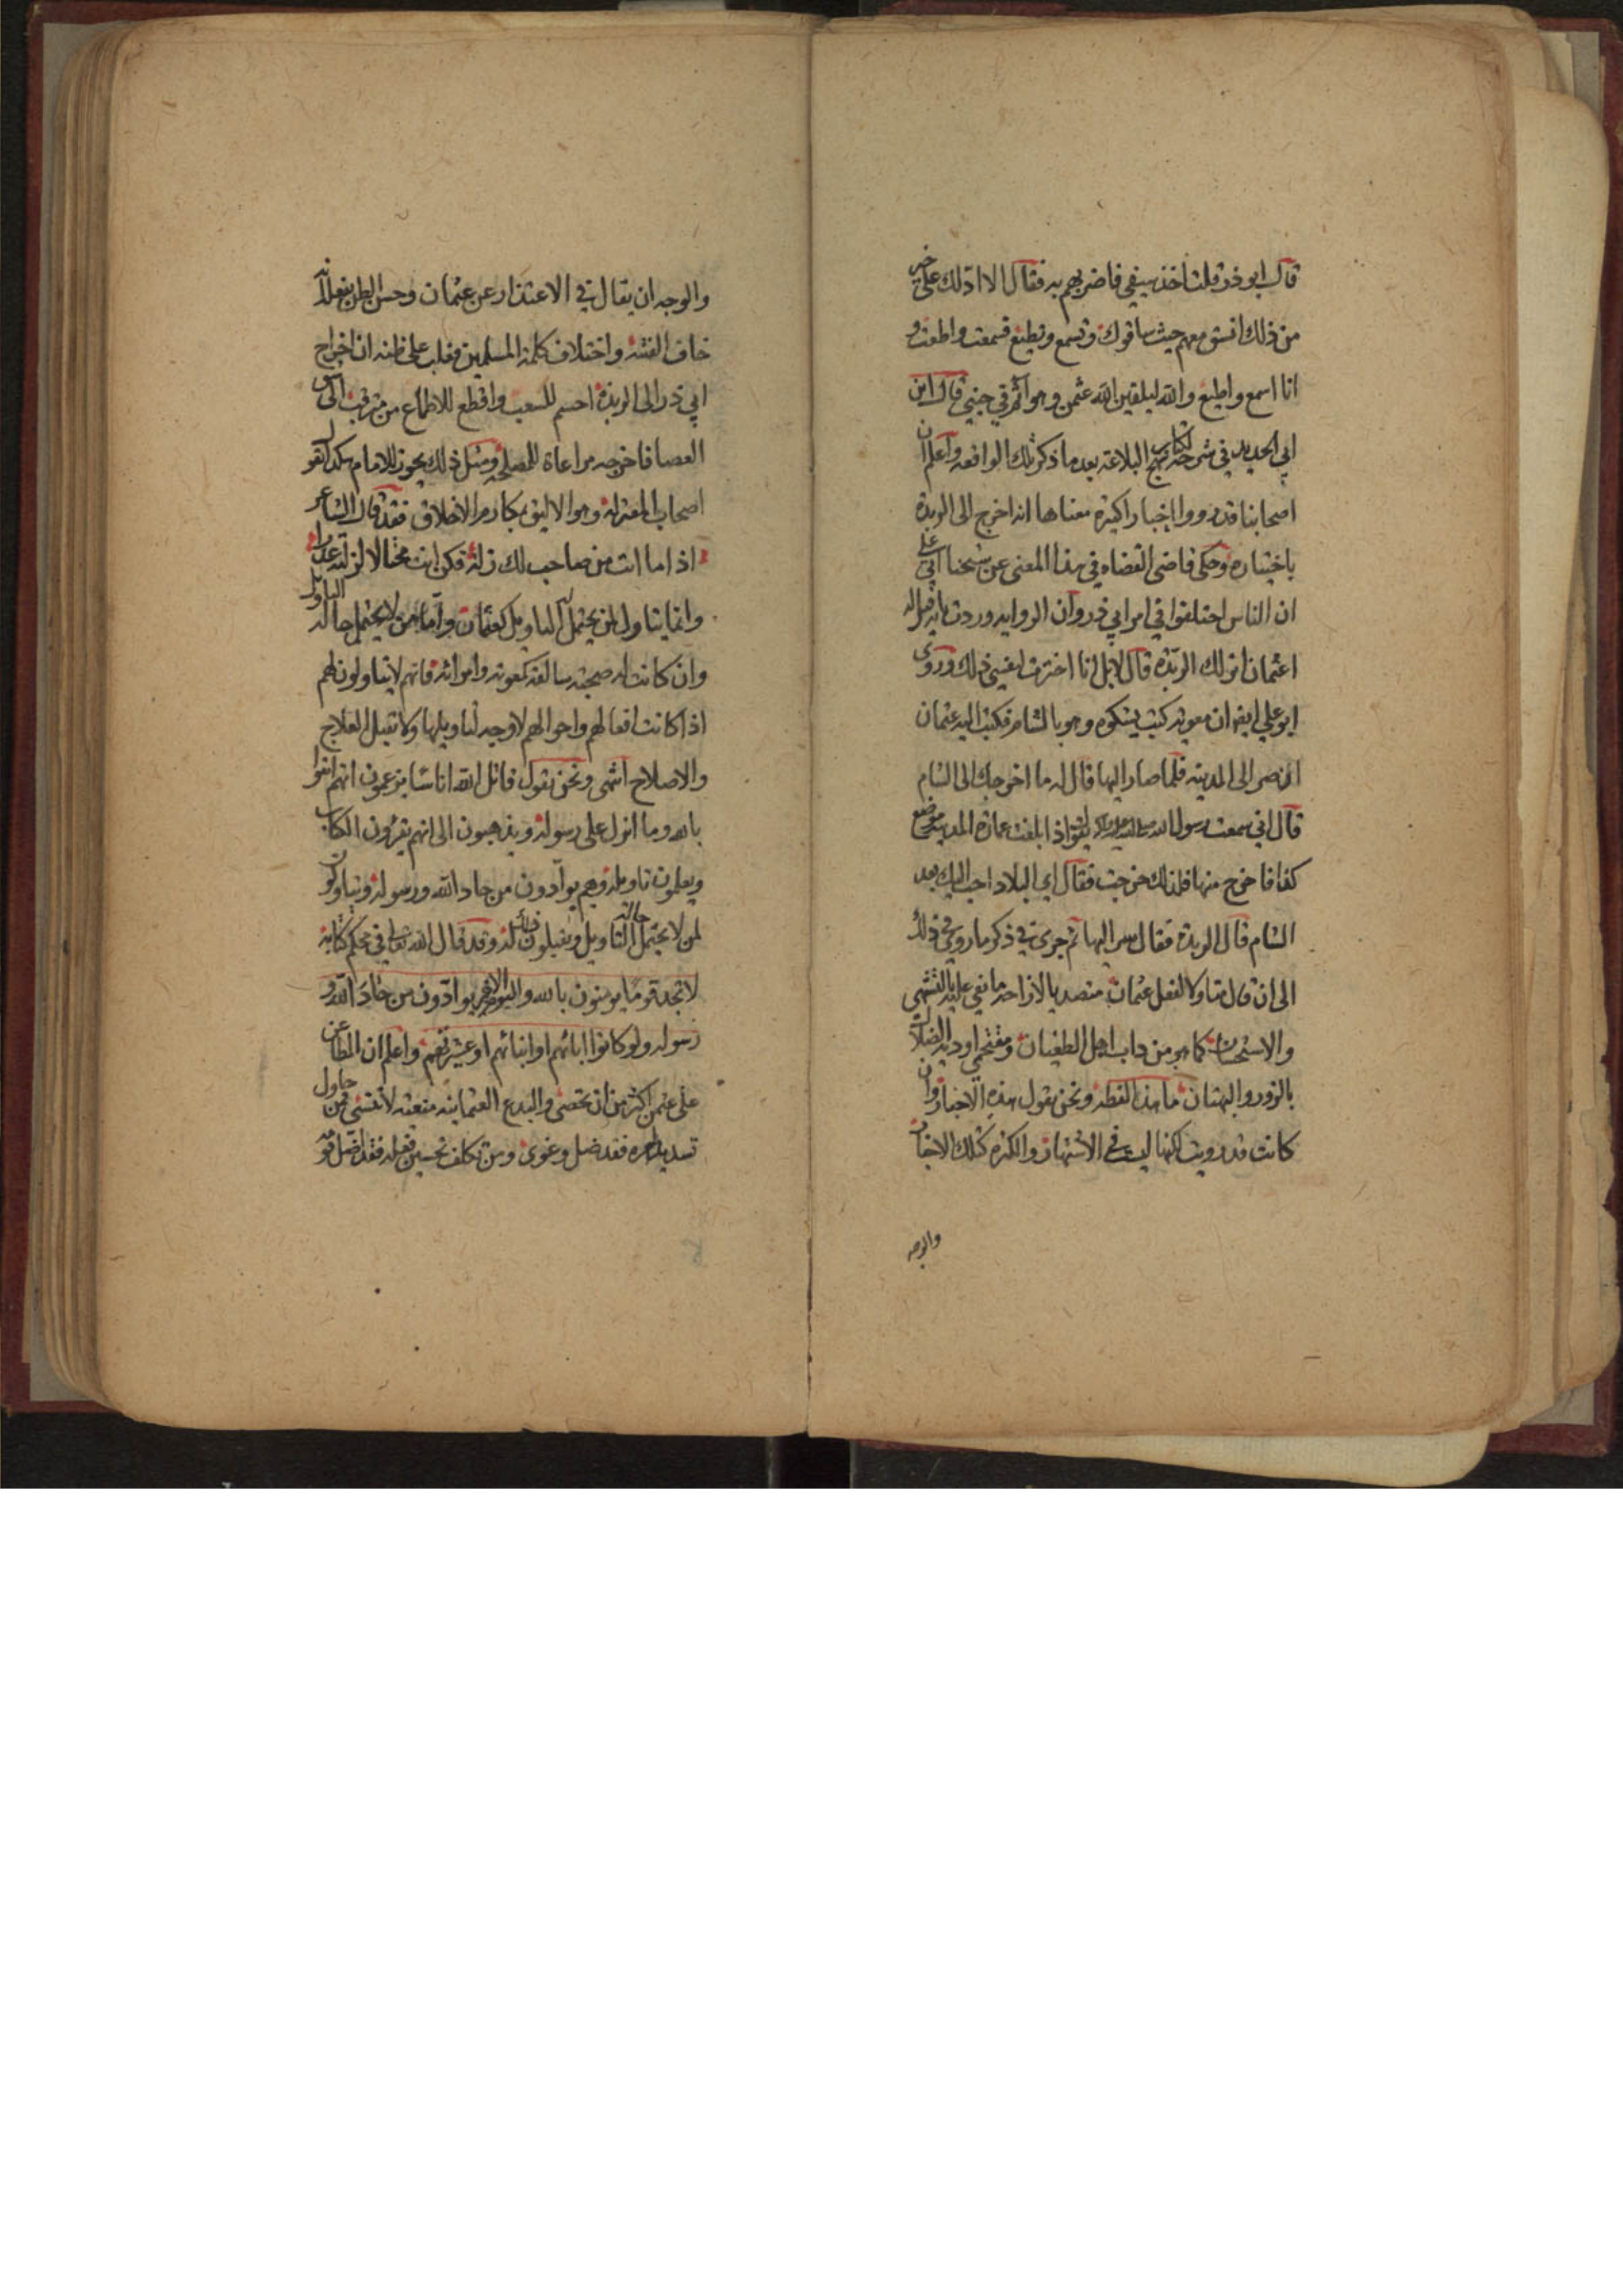 قال ابو ذر قلت اخذ سيفي فاضربهم به فقال الا ادلك على خير
من ذلك انسق معهم حيث ساقوك وتسمع وتطيع فسمعت واطعت و
انا اسمع واطيع والله ليلقين الله عثمن وهو اثم في جنبي قال ابن
ابي الحديد في شرحه لكتاب نهج البلاغة بعد ما ذكر تلك الواقعه واعلم ان
اصحابنا قد رووا اخبارا كثيرة معناها انه اخرج الى الربذة
باختياره وحكى قاضي القضاه في هذا المعنى عن شيخنا ابي علي
ان الناس اختلفوا في امر ابي ذر وان الروايه وردت بانه قيل له
اعثمان انزلك الربذة قال لا بل انا اخترت لنفسي ذلك وروى
ابو علي ايضا ان معويه كتب يشكوه وهو بالشام فكتب اليه عثمان
ان صر الى المدينه فلما صار اليها قال له ما اخرجك الى الشام
قال اني سمعت رسول الله صلى الله عليه واله يقول اذا بلغت عمارة المدينه موضع
كذا فاخرج منها فلذلك خرجت فقال اي البلاد احب اليك بعد
الشام قال الربذة فقال سر اليها ثم جرى في ذكر ما روي في ذلك
الى ان قال متاولا لفعل عثمان متصديا لازاحه ما نعي عليه بالتشهي
والاستحسان كما هو من داب اهل الطغيان ومقتحمي اوديه الضلال
بالزور والبهتان ما هذا لفظه ونحن نقول هذه الاخبار وان
كانت قد رويت لكنها ليست في الاشتهار والكثرة كتلك الاخبار
والوجه
والوجه ان يقال في الاعتذار عن عثمان وحسن الظن بفعله انه
خاف الفتنه واختلاف كلمة المسلمين فغلب على ظنه ان اخراج
ابي ذر الى الربذة احسم للشعب واقطع للاطماع من
العصا فاخرجه مراعاة للمصلحة ومثل ذلك يجوز للامام هكذا يقول
اصحاب المعتزله وهو الاليق بمكارم الاخلاق فقد قال الشاعر
اذا ما اتت من صاحب لك زلة فكن انت محتالا لزلته عذرا
وانما يتاول لمن يحتمل حاله التاويل كعثمان واما من لا يحتمل حاله التاويل
وان كانت له صحبة سالفة كمعويه واضرابه فانهم لا يتاولون لهم
اذا كانت افعالهم واحوالهم لا وجه لتاويلها ولا تقبل العلاج
والاصلاح انتهى ونحن نقول قاتل الله اناسا يزعمون انهم امنوا
بالله وما انزل على رسوله ويذهبون الى انهم يقرؤن الكتاب
ويعلمون تاويله وهم يوآدون من حاد الله ورسوله ويتاولون
لمن لا يحتمل حاله التاويل ويقيلون ذلك له وقد قال الله تعالى في محكم كتابه
لا تجد قوما يؤمنون بالله واليوم الاخر يوادون من حاد الله و
رسوله ولو كانوا ابائهم او ابنائهم او عشيرتهم واعلم ان المطاعن
على عثمن اكثر من ان تحصى والبدع العثمانيه لا فمن حاول
تسديد امره فقد ضل وغوى ومن تكلف تحسين فعله فقد اضل قو